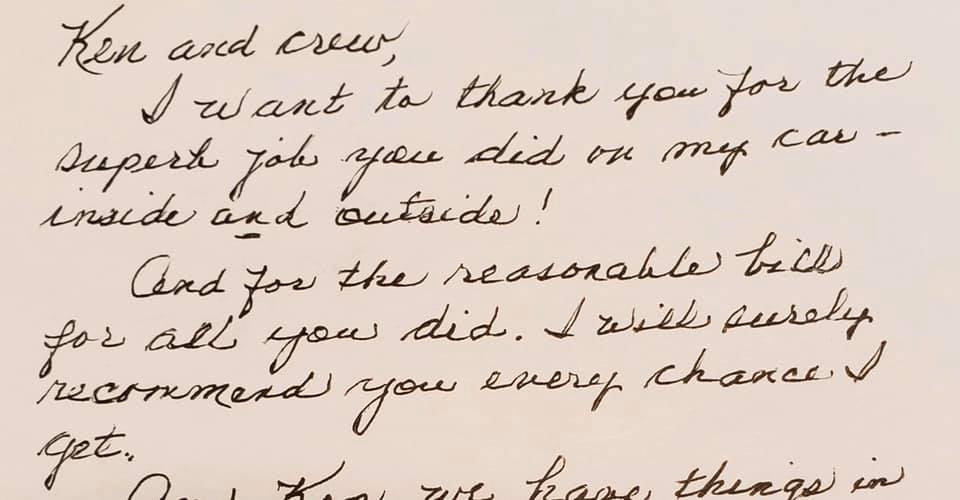 Ken and crew,
I want to thank you for the
superb job you did on my car -
inside and outside!
And for the reasonable bill
for all you did. I will surely
recommend you every chance I
get.
And Ken we have things in